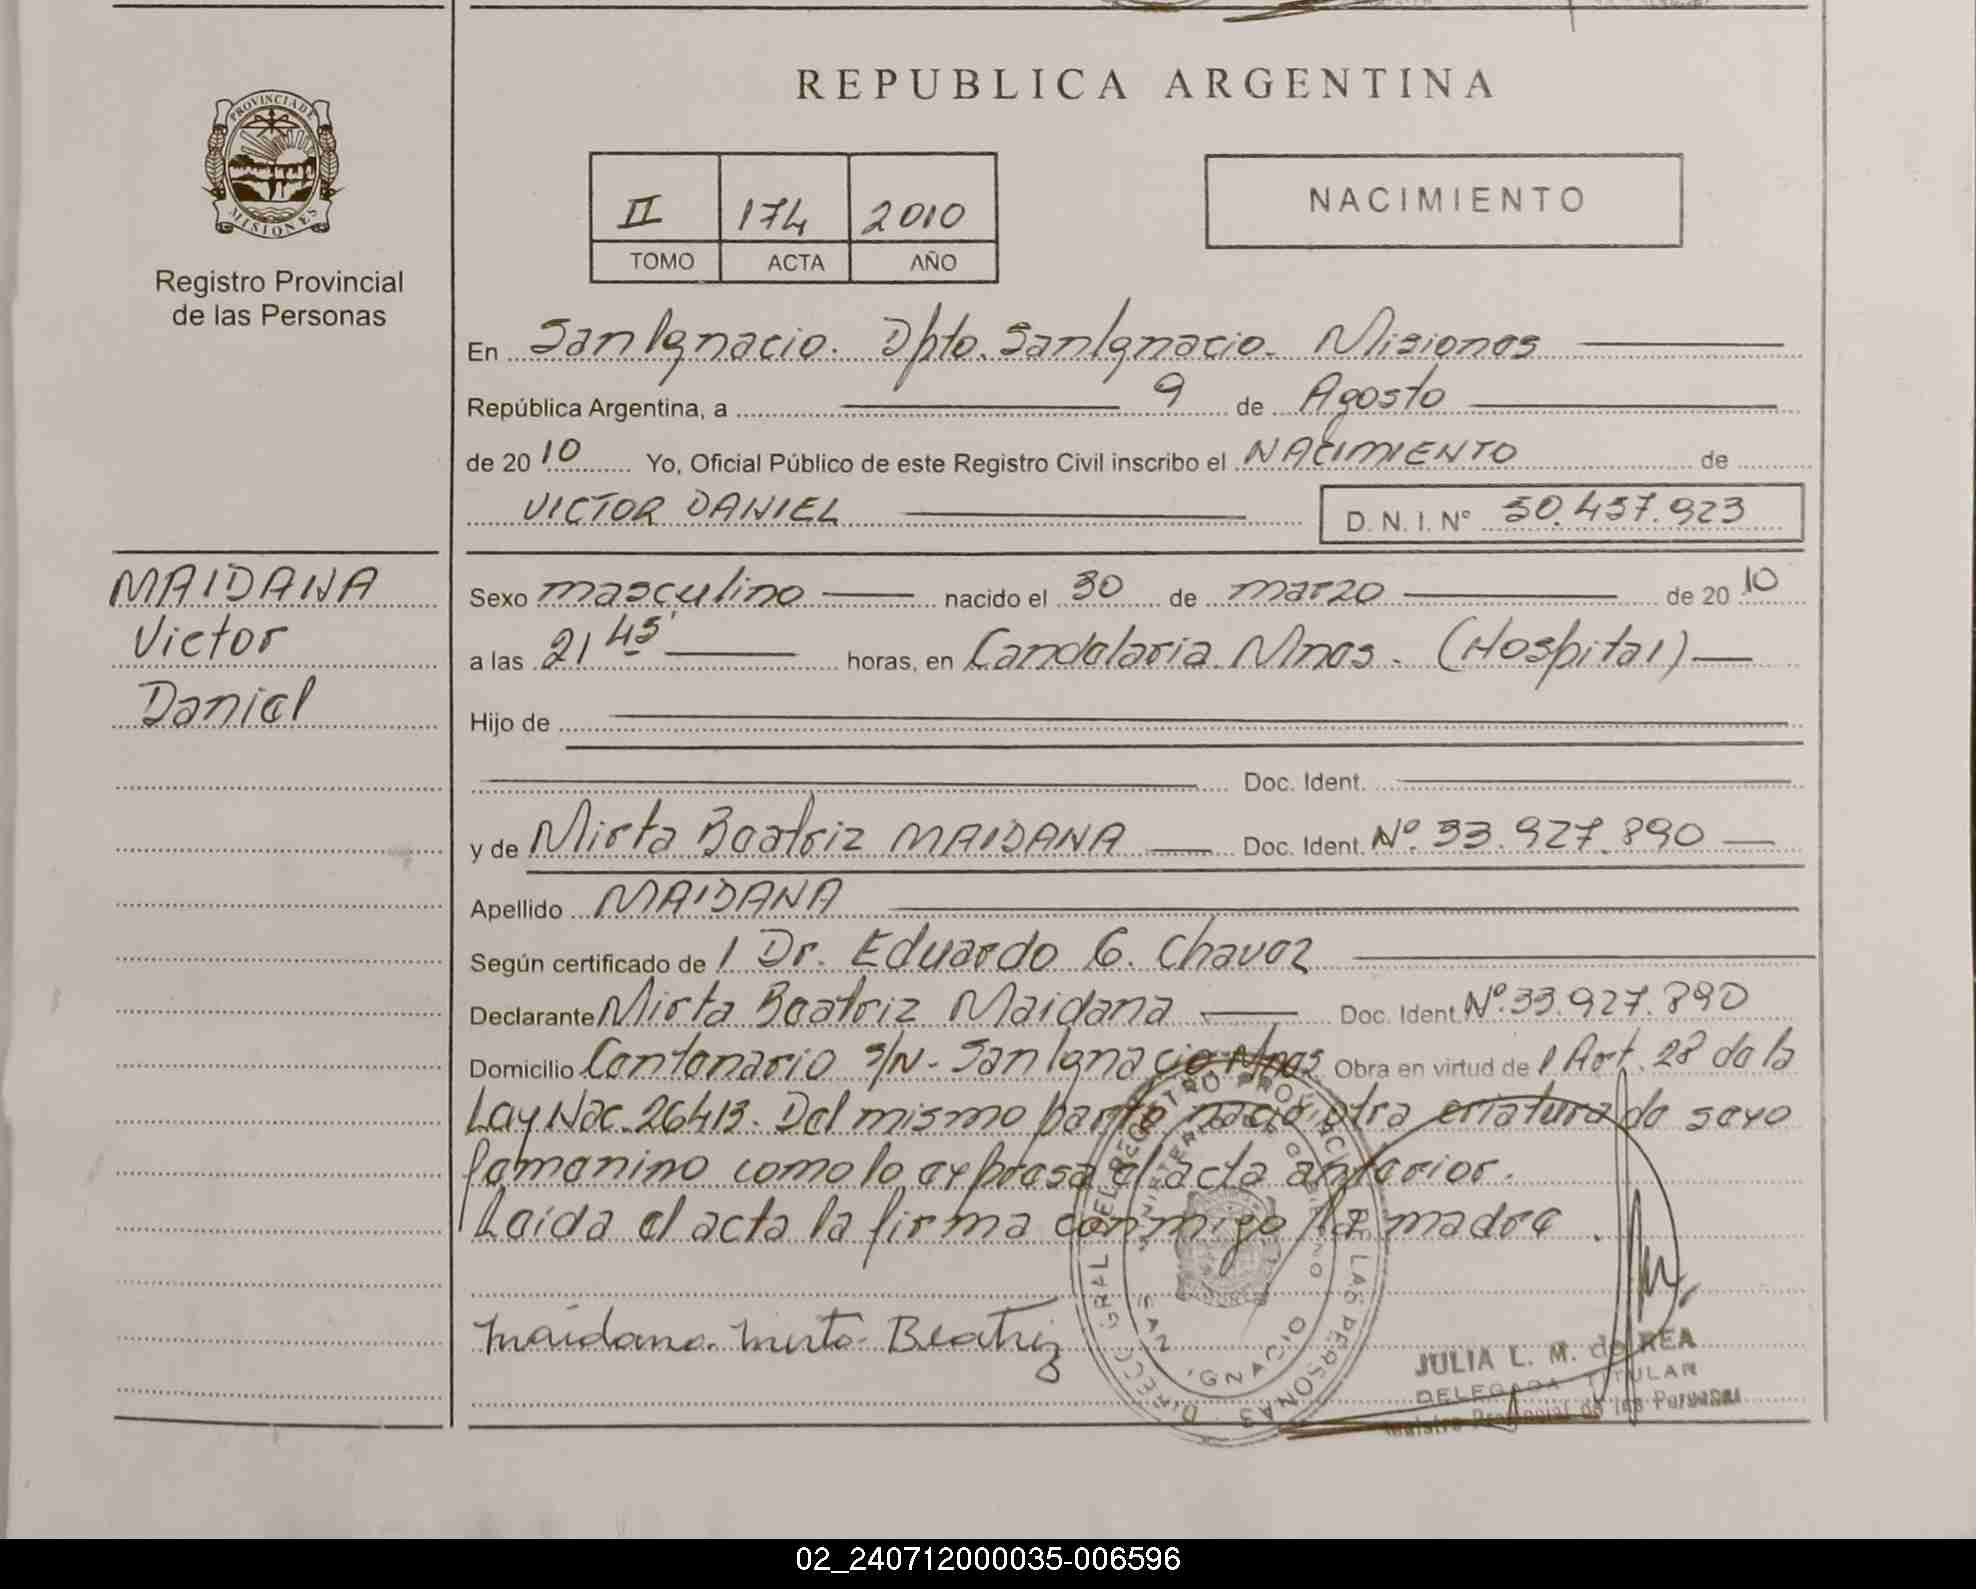 REPUBLICA ARGENTINA
PROVINCIA DE MISIONES
Registro Provincial
de las Personas
II 174 2010
TOMO ACTA AÑO
NACIMIENTO
En San Ignacio. Dpto. San Ignacio. Misiones
República Argentina, a 9 de Agosto
de 2010 Yo, Oficial Público de este Registro Civil inscribo el NACIMIENTO de
VICTOR DANIEL D. N. I. Nº 50.457.923
MAIDANA
Victor
Daniel
Sexo masculino nacido el 30 de marzo de 2010
a las 21 45' horas, en Candelaria Mnes. (Hospital)
Hijo de
Doc. Ident.
y de Mirta Beatriz MAIDANA Doc. Ident. Nº. 33.927.890
Apellido MAIDANA
Según certificado de l Dr. Eduardo G. Chavez
Declarante Mirta Beatriz Maidana Doc. Ident. Nº.33.927.890
Domicilio Centenario s/N - San Ignacio. Mnes Obra en virtud de l Art. 28 de la
Ley Nac. 26413. Del mismo parto nació otra criatura de sexo
femenino como lo expresa el acta anterior.
Leida el acta la firma conmigo la madre.
Maidana. Mirta Beatriz
DIRECC GRAL DEL REGISTRO PROVINCIAL DE LAS PERSONAS
MINISTERIO DE GOBIERNO
SAN IGNACIO
JULIA L. M. de REA
DELEGADA TITULAR
Registro Provincial de las Personas
02_240712000035-006596